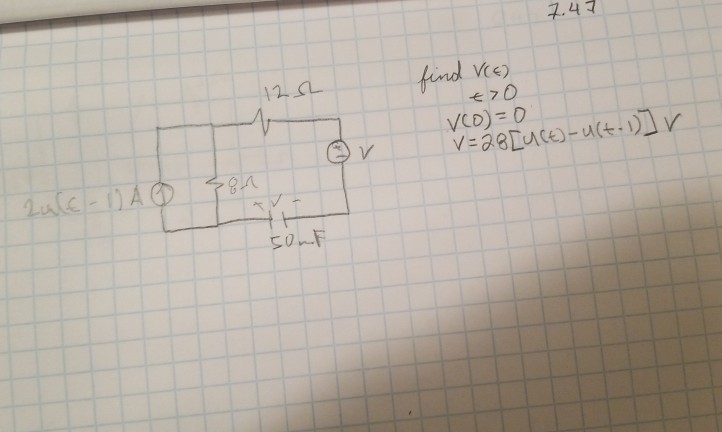 7.47
find v(t)
t>0
V(0)=0
V=28[u(t)-u(t-1)] V
12 Ω
V
8Ω
2u(t-1) A
+ V -
50mF